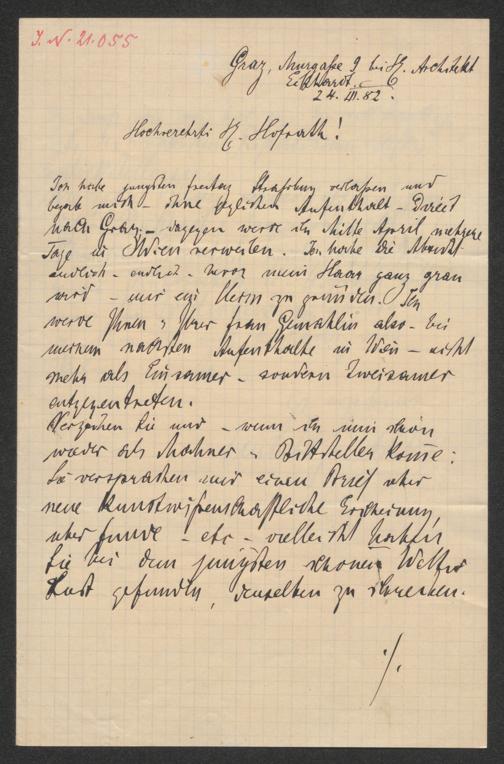 J. N. 21.055
Graz, Murgasse 9 bei H. Architekt
Eckhardt.
24. III. 82.
Hochverehrter H. Hofrath!
Ich habe jüngsten freitag Strassburg verlassen und
begab mich – ohne jeglichen Aufenthalt – Direct
nach Graz; – dagegen werde ich Mitte April mehrere
Tage in Wien verweilen. Ich habe die Absicht
endlich – endlich – bevor mein Haar ganz grau
wird – mir ein Heim zu gründen. Ich
werde Ihnen u Ihrer frau Gemahlin also – bei
meinem nächsten Aufenthalte in Wien – nicht
mehr als Einsamer – sondern Zweisamer
entgegentreten.
Verzeihen Sie mir – wenn ich nun schon
wieder als Mahner u Bittsteller kom̄e:
Sie versprachen mir einen Brief über
neue kunstwissenschaftliche Erscheinung,
über funde – etc – vielleicht haben
Sie bei dem jüngsten schönen Wetter
Lust gefunden, denselben zu schreiben.
./.